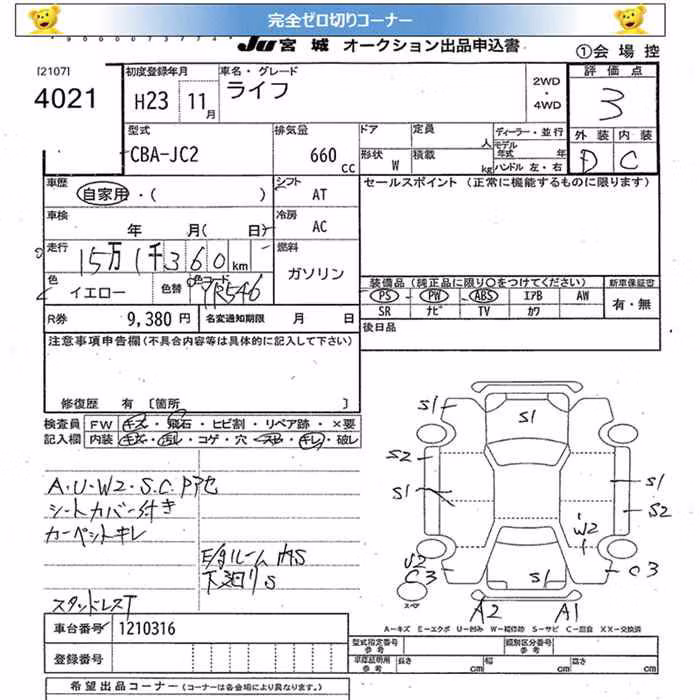 完全ゼロ切りコーナー
Ju 宮城 オークション出品申込書
①会場控
[2107]
4021
初度登録年月
H23 11月
車名・グレード
ライフ
2WD
・
4WD
評価点
3
外装 内装
D C
型式
CBA-JC2
排気量
660 cc
ドア
定員 人
形状 W
積載 kg
ディーラー・並行
モデル年式 年
ハンドル 左・右
車歴
自家用・( )
シフト
AT
セールスポイント (正常に機能するものに限ります)
車検
年 月( 日)
冷房
AC
走行
15万1千360km
燃料
ガソリン
色
イエロー
色替
色コード
YR546
装備品 (純正品に限り○をつけてください)
新車保証書
PS PW ABS エアB AW
有・無
SR ナビ TV カワ
R券
9,380円
名変通知期限 月 日
後日品
注意事項申告欄(不具合内容等は具体的に記入して下さい)
修復歴 有 〔箇所 〕
検査員記入欄
FW キズ・飛石・ヒビ割・リペア跡・×要
内装 キズ・汚レ・コゲ・穴・スレ・キレ・破レ
A・U・W2・S・C・Pアセ
シートカバー付き
カーペットキレ
E/gルーム内S
下廻りS
スタッドレスT
S1
S1
S2
S1
S1
S2
W2
U2
C3
S1
C3
スペア
A2 A1
A-キズ E-エクボ U-凹み W-補修跡 S-サビ C-腐食 XX-交換済
車台番号
1210316
登録番号
型式指定番号 参考
類別区分番号 参考
車庫証明用 参考
長さ cm
幅 cm
高さ cm
希望出品コーナー (コーナーは各会場により異なります。)